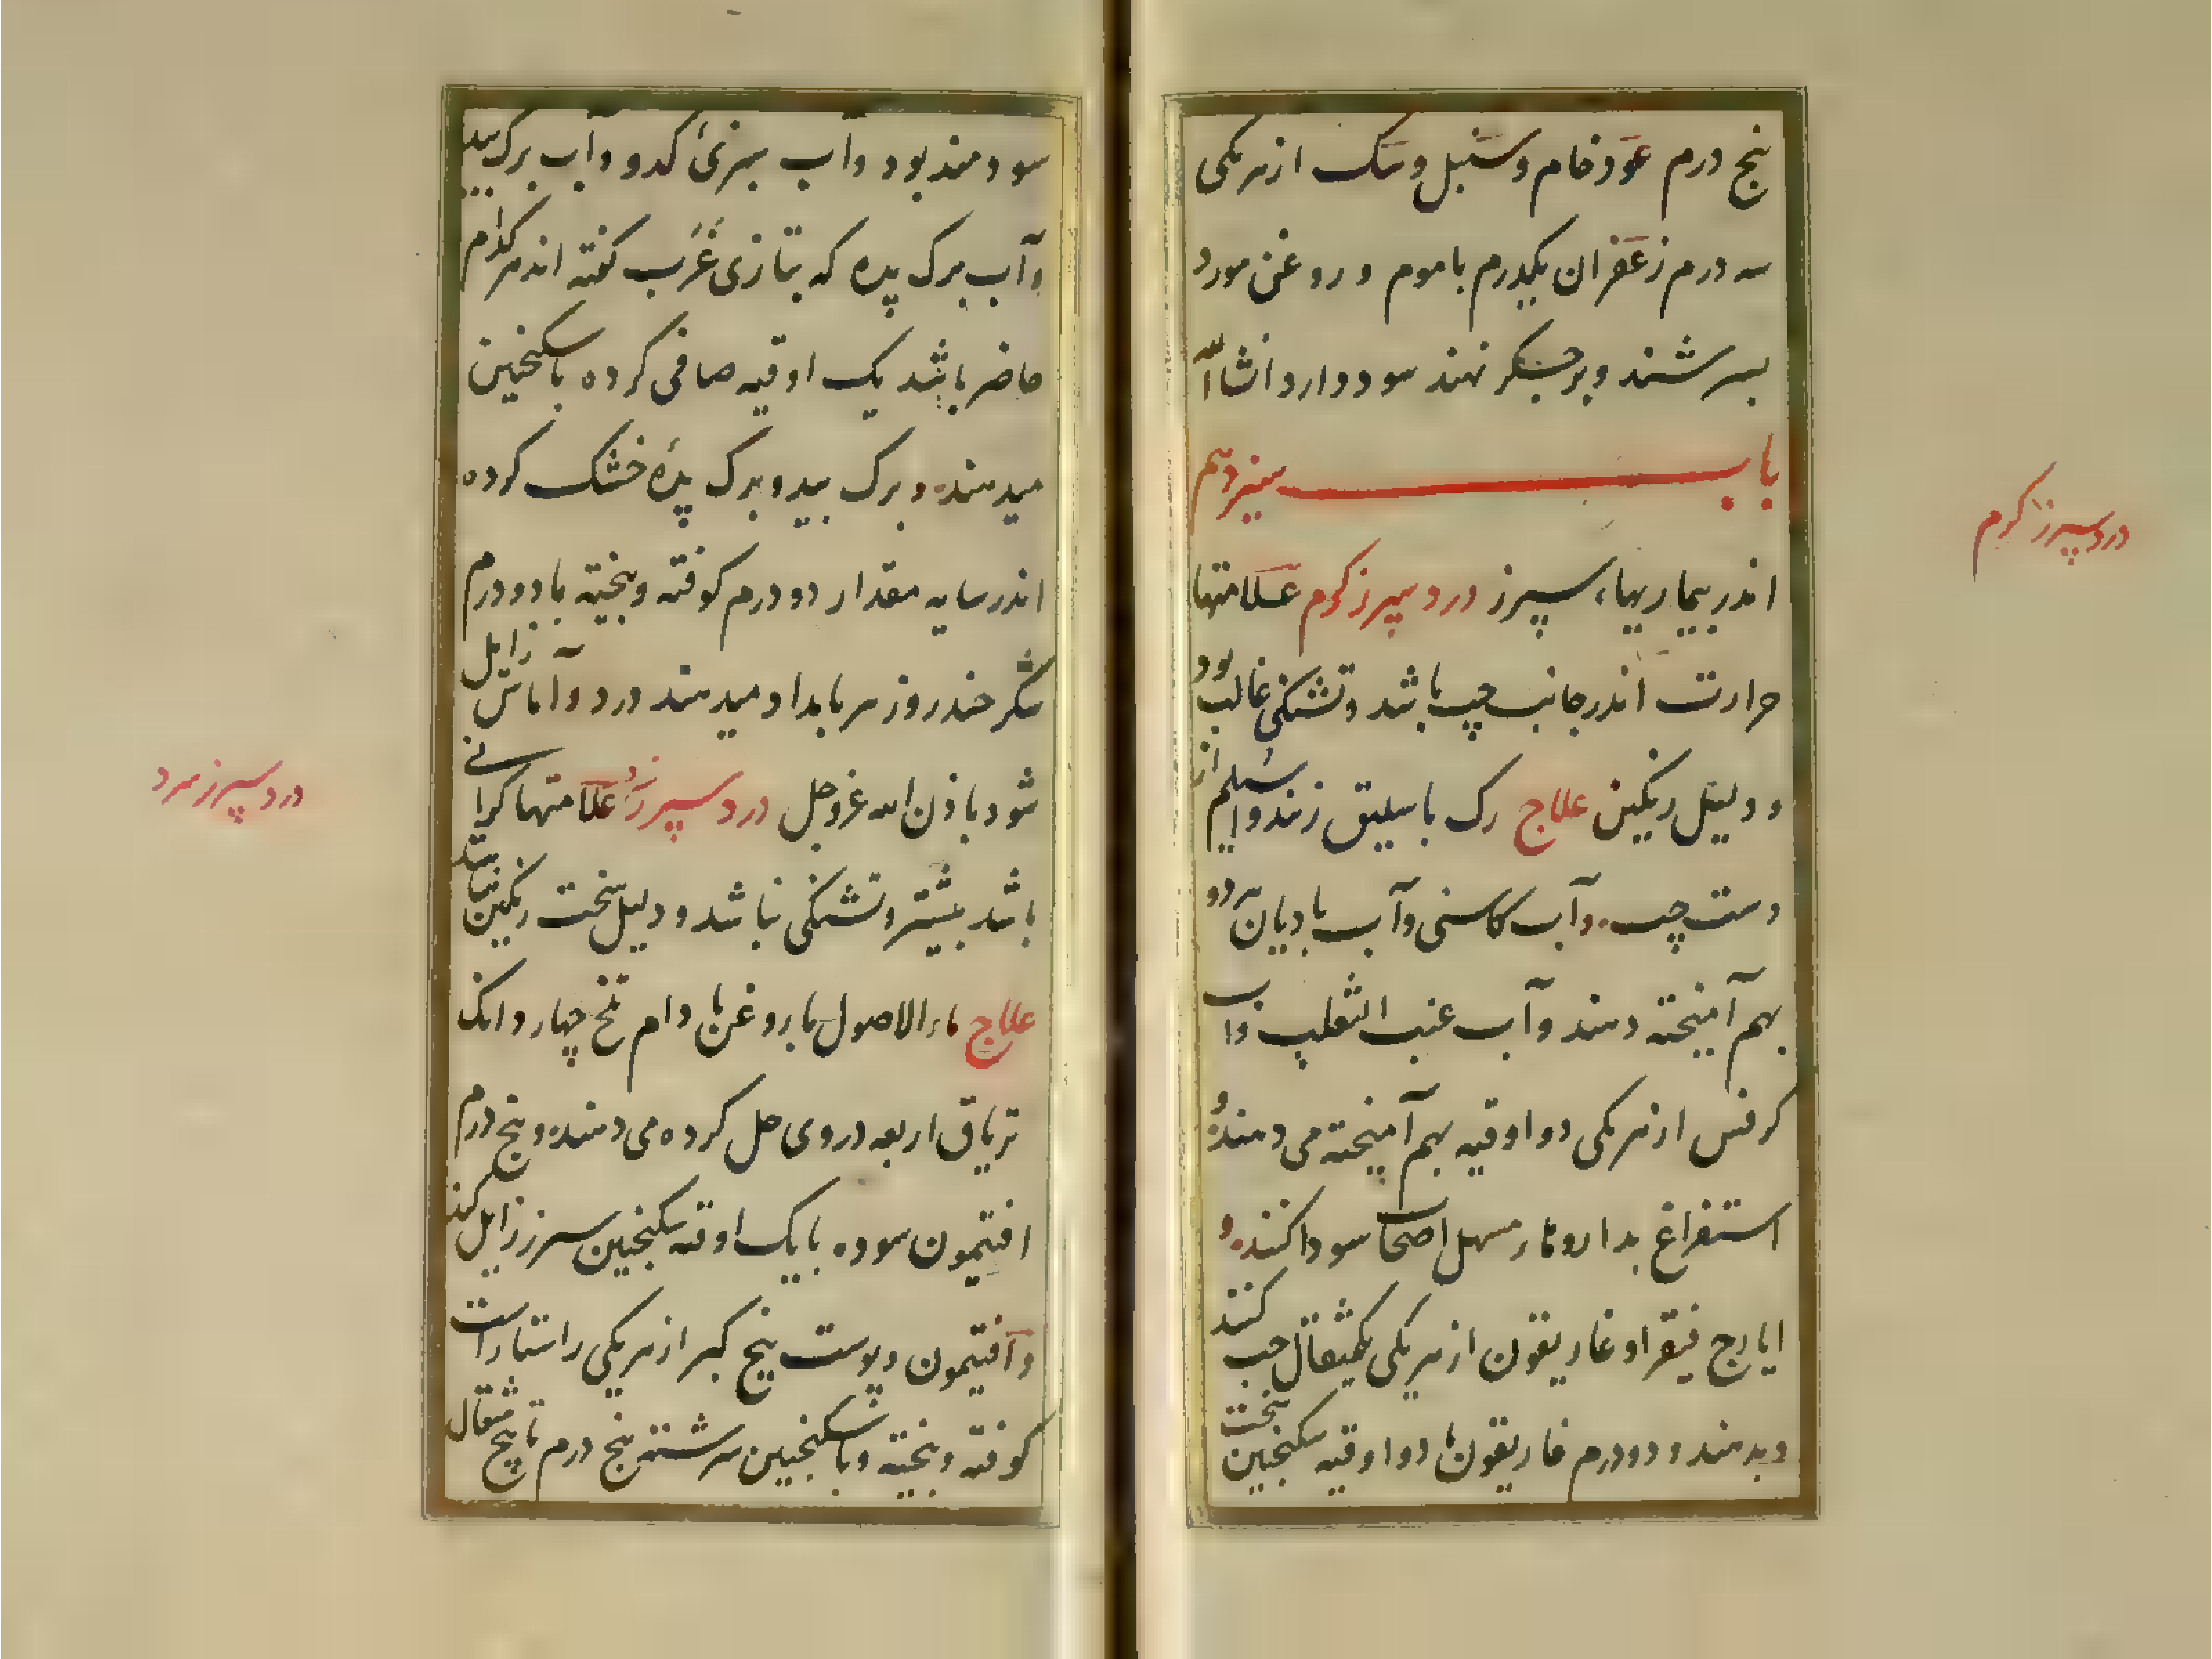 پنج درم عود خام و سنبل و سک از هر یکی
سه درم زعفران یکدرم با موم و روغن مورد
بسرشند و بر جگر نهند سود دارد انشاالله
باب سیزدهم
درد سپرز کرم
اندر بیماریهاء سپرز درد سپرز کرم علامتها
حرارت اندر جانب چپ باشد و تشنکی غالب بود
و دلیل رنکین علاج رک باسلیق زنند و اسیلم از
دست چپ و آب کاسنی و آب بادیان هر دو
بهم آمیخته دهند و آب عنب الثعلب و آب
کرفس از هر یکی دو اوقیه بهم آمیخته می دهند و
استفراغ بداروهاء مسهل اصحاب سودا کنند و
ایارج فیقرا و غاریقون از هر یکی یکمثقال حب کنند
و بدهند و دو درم غاریقون با دو اوقیه سکنجبین پخت
سودمند بود و آب سبزئ کدو و آب برک بید
و آب برک پده که بتازی غرب کفته اند هر کدام
حاضر باشد یک اوقیه صافی کرده با سکنجبین
میدهند و برک بید و برک پده خشک کرده
اندر سایه مقدار دو درم کوفته و بیخته با دو درم
شکر چند روز هر بامداد میدهند درد و آماش زایل
شود باذن الله عز و جل درد سپرز سرد علامتها کرانی
درد سپرز سرد
باشد بیشتر و تشنکی نباشد و دلیل سخت رنکین نباشد
علاج ماء الاصول با روغن بادام تلخ چهار دانک
تریاق اربعه در وی حل کرده می دهند و پنج درم
افتیمون سوده با یک اوقیه سکنجبین سپرز زایل کند
و افتیمون و پوست بیخ کبر از هر یکی راستاراست
کوفته و بیخته و با سکنجبین سرشته پنج درم تا پنج مثقال